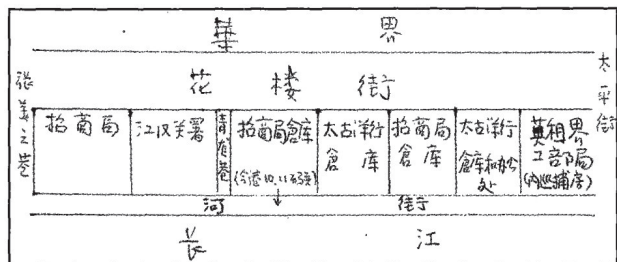 華 界
花 楼 街
张美之巷
太平街
招商局
江汉关署
青龙巷
招商局倉库
太古洋行
倉 库
招商局
倉 库
太古洋行
倉库和办公
处
英租界
工部局
(内巡捕房)
河 街
长 江